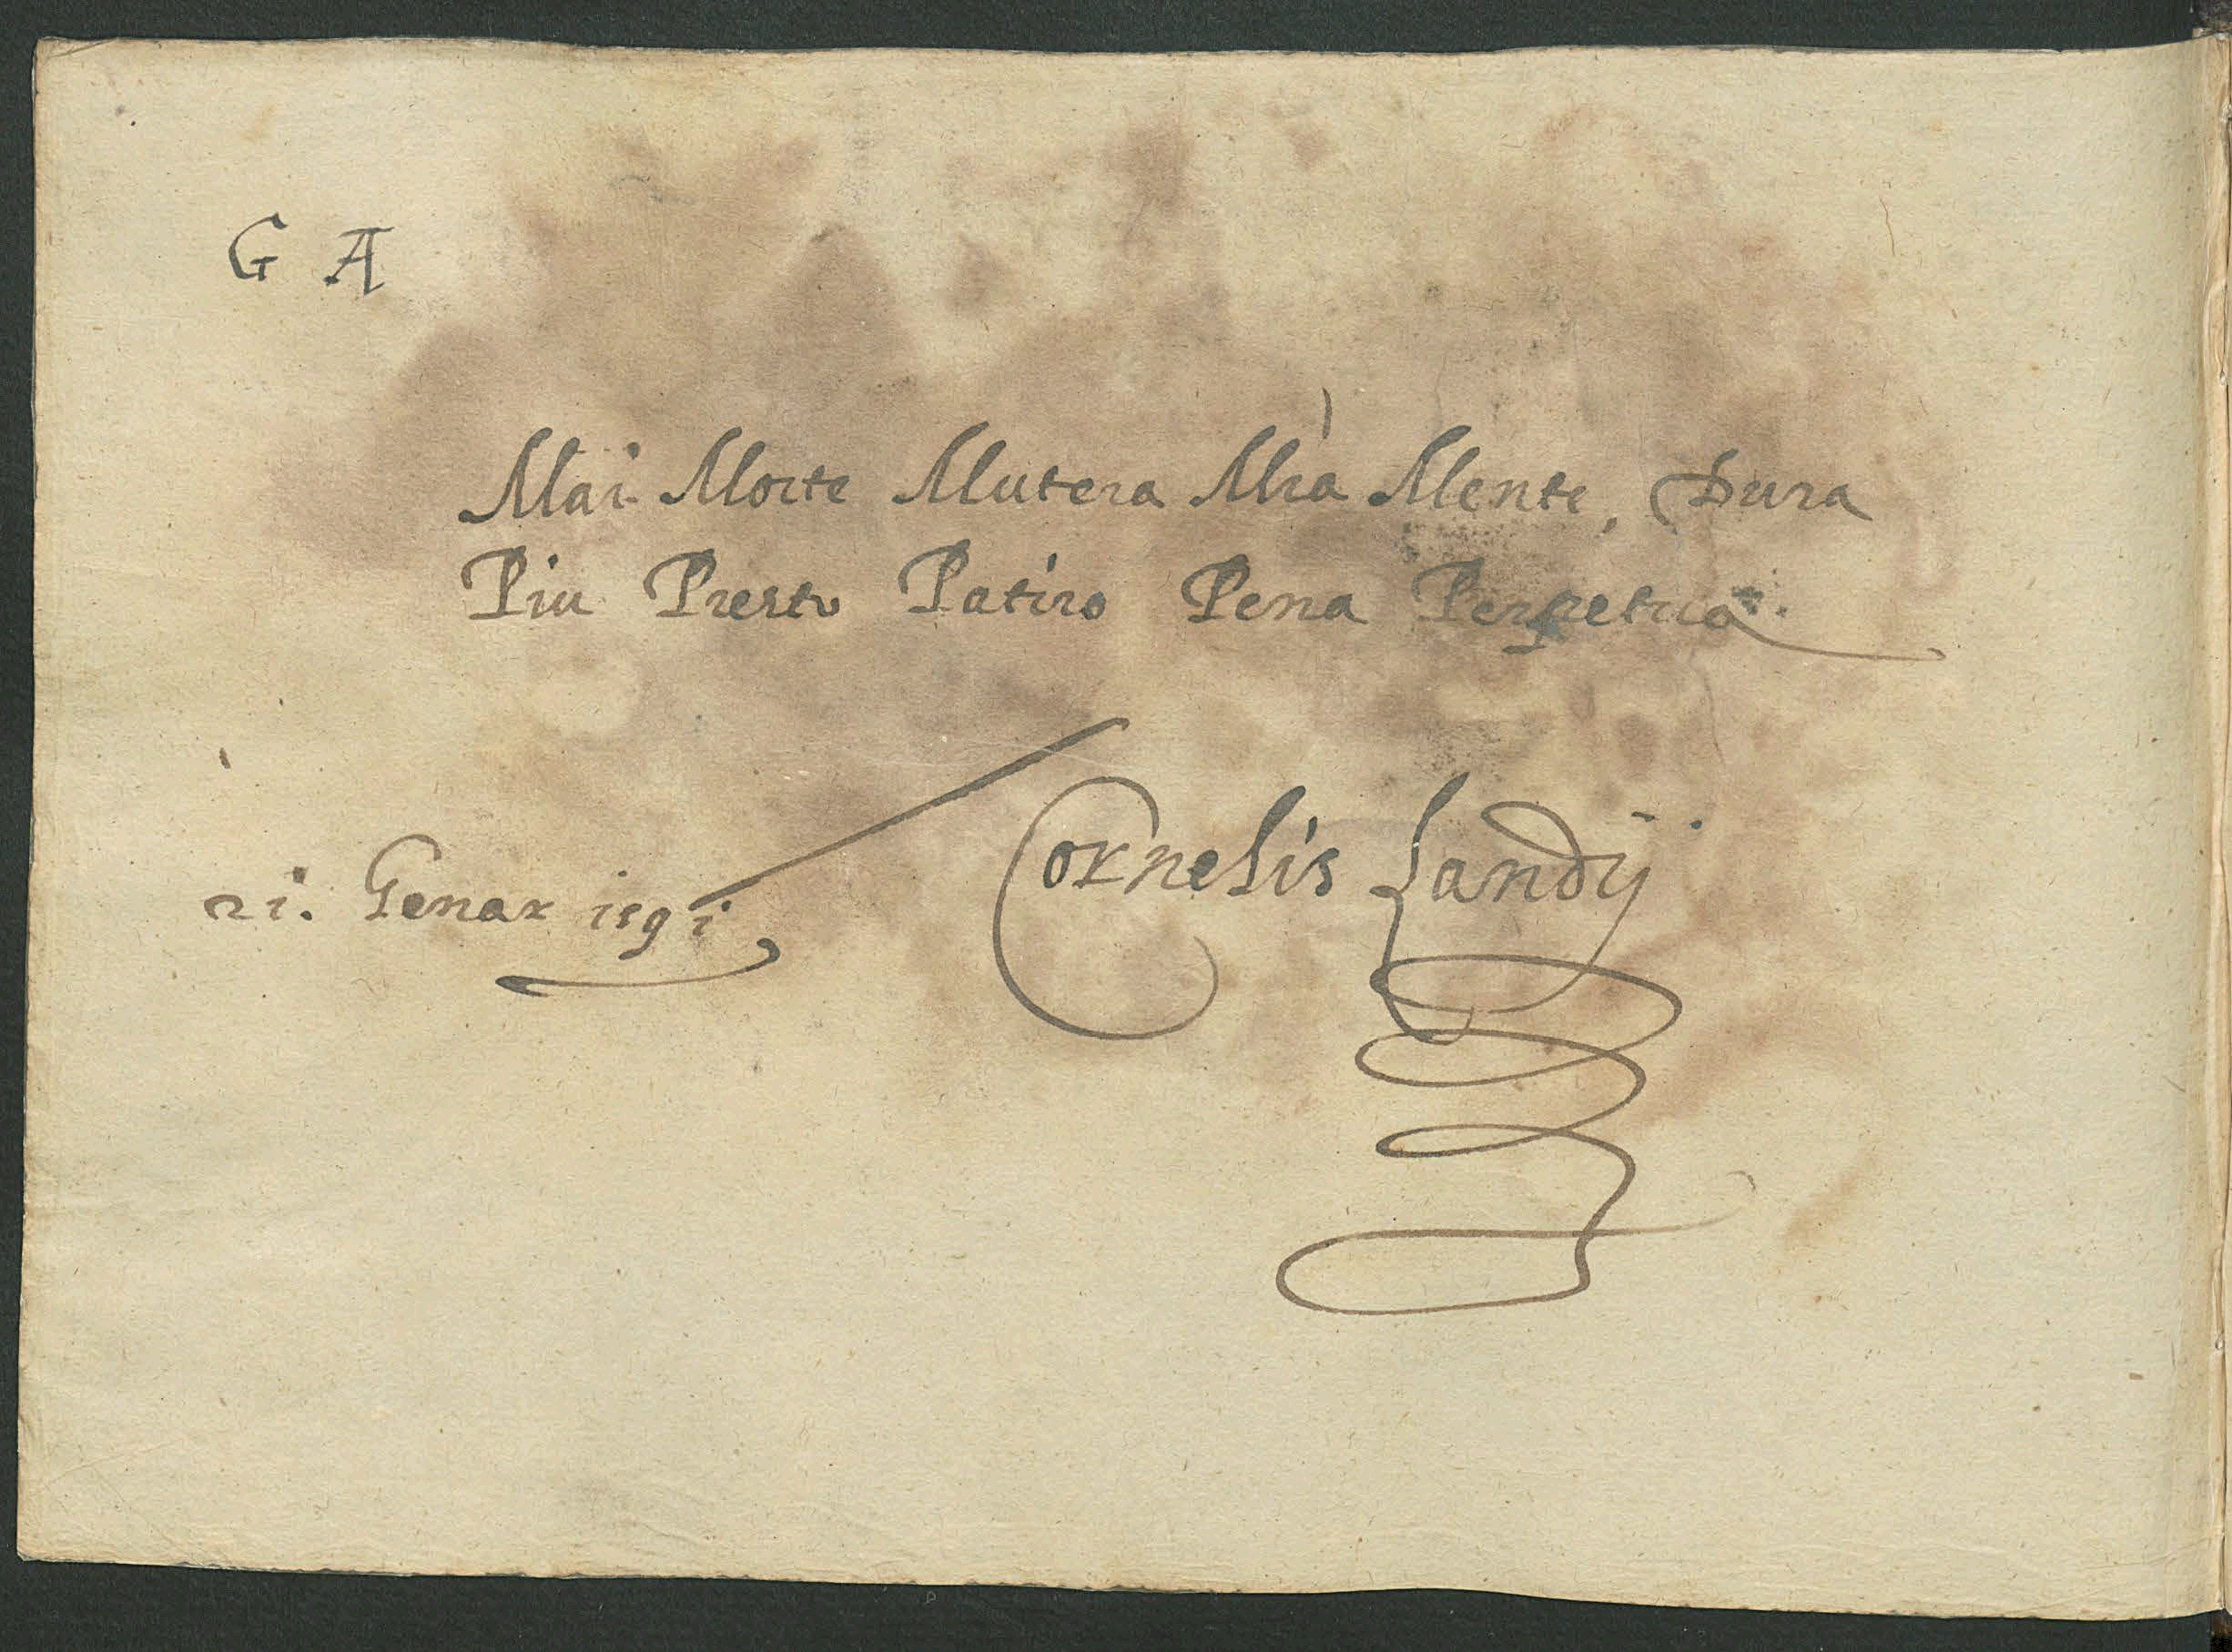 G A
Mai Morte Mutera Mia Mente, Dura
Piu Presto Patiro Pena Perpetua.
21. Genar 1591
Cornelis Landÿ